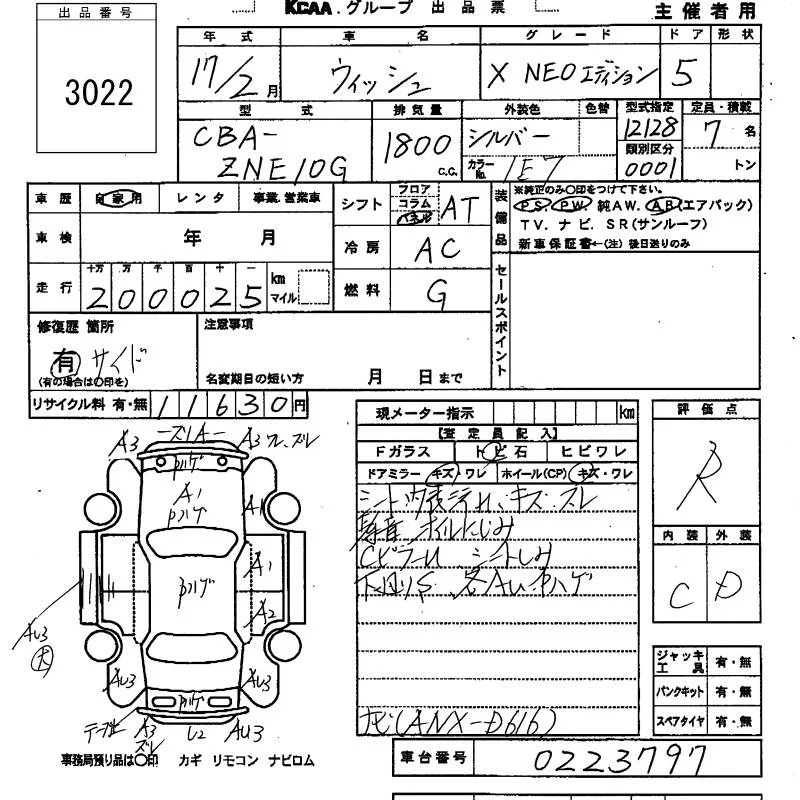 出品番号
3022
KCAA.グループ 出品票
主催者用
年式 車名 グレード ドア 形状
17/2月 ウィッシュ X NEOエディション 5
型式 排気量 外装色 色替 型式指定 定員・積載
CBA-
ZNE10G
1800 c.c.
シルバー
カラーNo. 1E7
12128
類別区分
0001
7名
トン
車歴 自家用 レンタ 事業.営業車
シフト フロア コラム パネル AT
車検 年 月
冷房 AC
走行 十万 万 千 百 十 一
200025 km マイル
燃料 G
装備品
※純正のみ〇印をつけて下さい。
PS PW 純AW. AB(エアバック)
TV. ナビ. SR(サンルーフ)
新車保証書←(注) 後日送りのみ
セールスポイント
修復歴 箇所
有 サイド
(有の場合は〇印を)
注意事項
名変期日の短い方 月 日まで
リサイクル料 有・無 11630円
現メーター指示 km
【査定員記入】
Fガラス トビ石 ヒビワレ
ドアミラー キズ・ワレ ホイール(CP) キズ・ワレ
評価点
R
内装 外装
C D
A3 A3 ワレ、ズレ
A1
A1
A1
A2
AU3
大
AU3 AU3
A3
ズレ
AU3
ジャッキ工具 有・無
パンクキット 有・無
スペアタイヤ 有・無
ナビ(ANX-D616)
車台番号 0223797
事務局預り品は〇印 カギ リモコン ナビロム